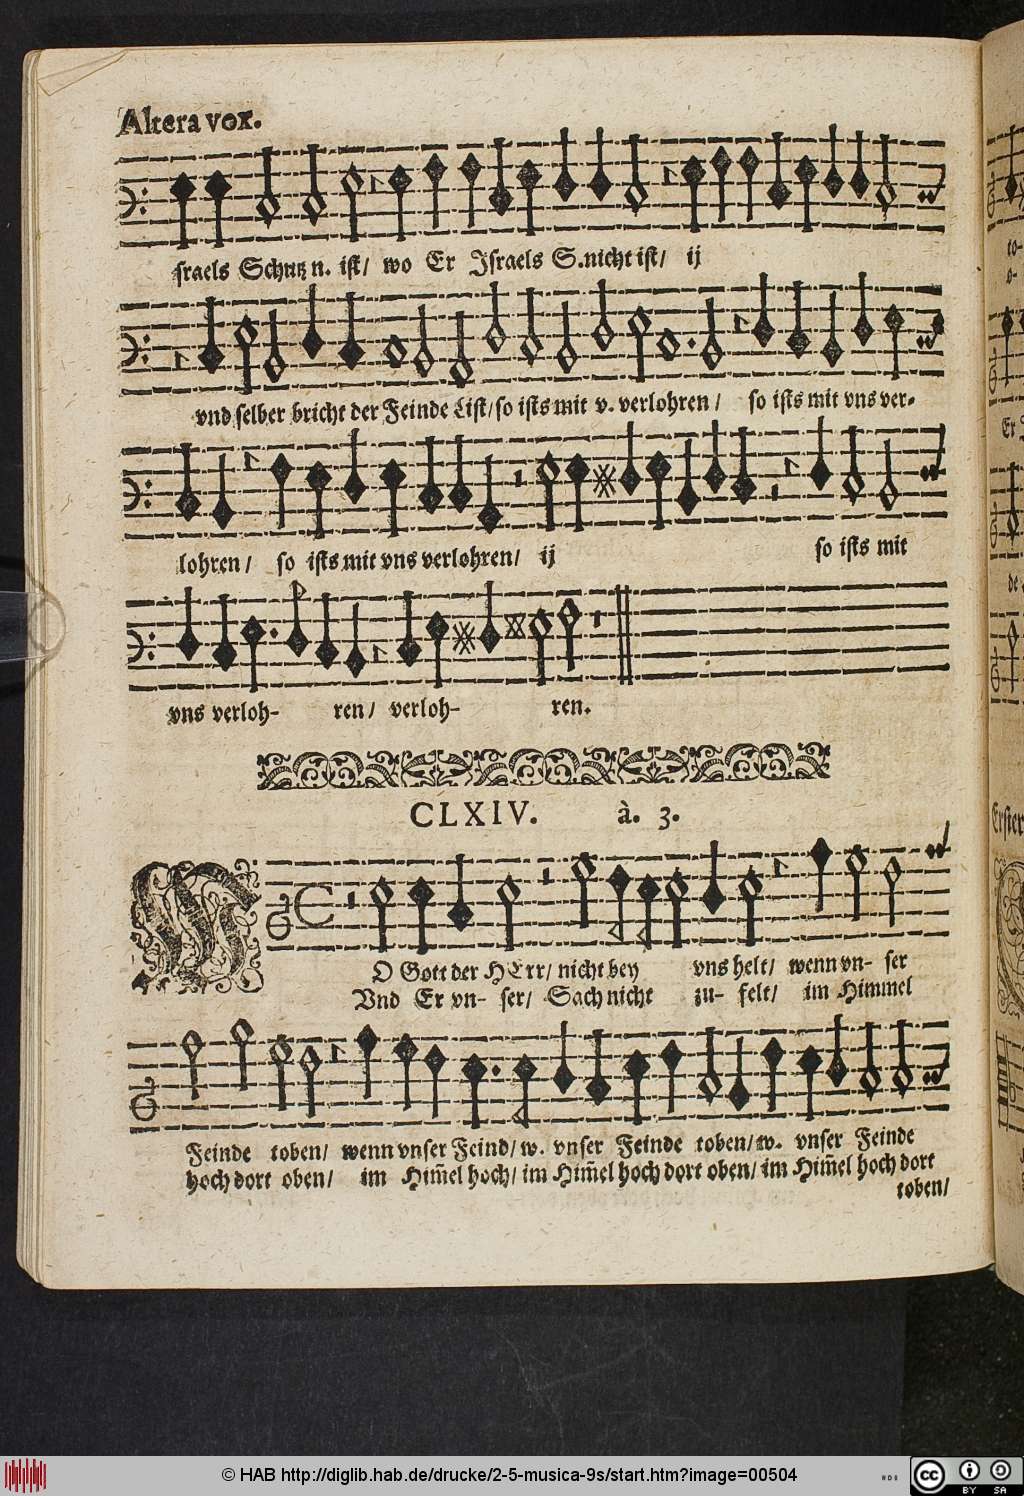 Altera vox.
sraels Schutz n. ist/ wo Er Israels S. nicht ist/ ij
vnd selber bricht der Feinde List/ so ists mit v. verlohren/ so ists mit vns ver-
lohren/ so ists mit vns verlohren/ ij so ists mit
vns verloh- ren/ verloh- ren.
CLXIV. à. 3.
WO Gott der HErr/ nicht bey vns helt/ wenn vn- ser
Vnd Er vn- ser/ Sach nicht zu- felt/ im Himmel
Feinde toben/ wenn vnser Feind/ w. vnser Feinde toben/ w. vnser Feinde
hoch dort oben/ im Him̃el hoch/ im Him̃el hoch dort oben/ im Him̃el hoch dort
toben/
to-
Er
de
Erster
© HAB http://diglib.hab.de/drucke/2-5-musica-9s/start.htm?image=00504
cc BY SA